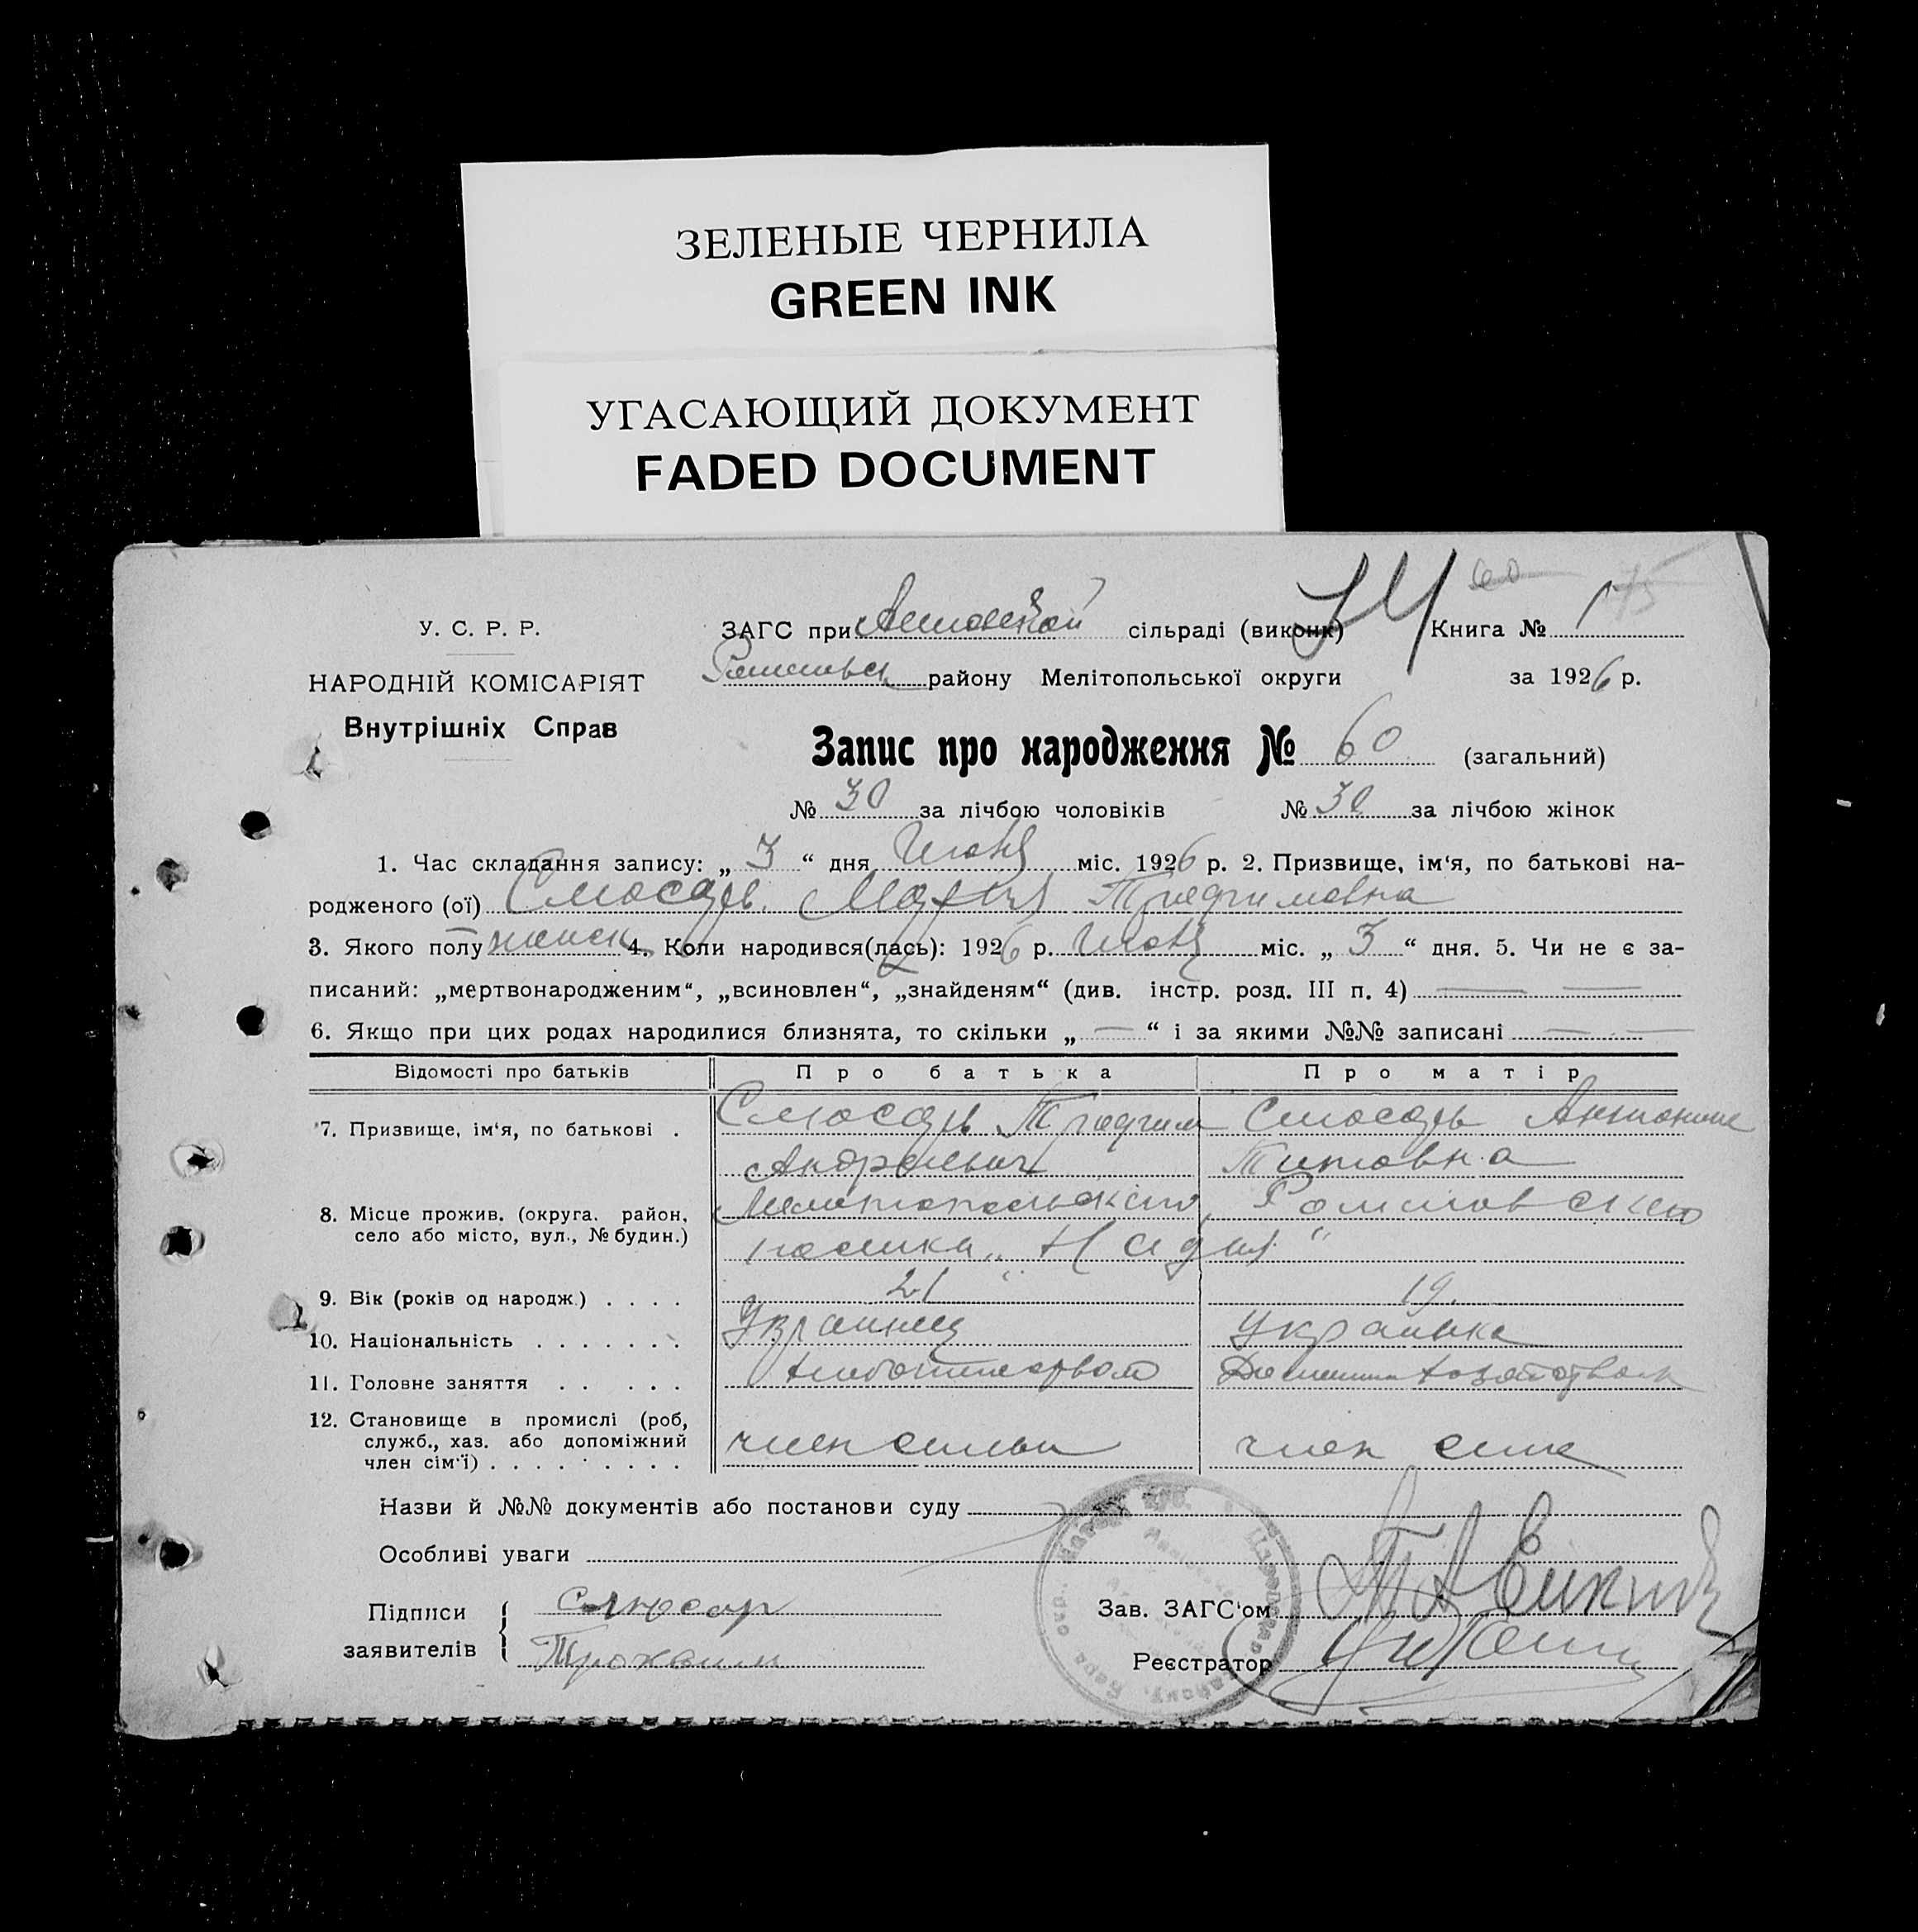 ЗЕЛЕНЫЕ ЧЕРНИЛА
GREEN INK
УГАСАЮЩИЙ ДОКУМЕНТ
FADED DOCUMENT
У. С. Р. Р.
НАРОДНІЙ КОМІСАРІЯТ
Внутрішніх Справ
ЗАГС при сільраді (виконк) Книга № 1
району Мелітопольської округи за 1926 р.
Запис про народження № 60 (загальний)
№ 30 за лічбою чоловіків № 30 за лічбою жінок
1. Час складання запису: „ 3 “ дня Июня міс. 1926 р. 2. Призвище, ім‘я, по батькові на-
родженого (ої) Слюсарь Мария Трафимовна
3. Якого полу женск 4. Коли народився(лась): 1926 р. Июня міс. „ 3 “ дня. 5. Чи не є за-
писаний: „мертвонародженим“, „всиновлен“, „знайденям“ (див. інстр. розд. III п. 4)
6. Якщо при цих родах народилися близнята, то скільки „ — “ і за якими №№ записані
Відомості про батьків Про батька Про матір
7. Призвище, ім‘я, по батькові . Слюсарь Трафим Слюсарь Антонина
Андреевич Титовна
8. Місце прожив. (округа, район, Мелитопольского
село або місто, вул., № будин.) поселка „Надия“
9. Вік (років од народж.) . . . . 21 19.
10. Національність . . . . . . . Украинец Украинка
11. Головне заняття . . . . . Хлебопашеством Домашним хозяйством
12. Становище в промислі (роб,
служб., хаз. або допоміжний член семьи член семьи
член сім‘ї) . . . . . . . . .
Назви й №№ документів або постанови суду
Особливі уваги
Підписи заявителів слюсар
Трохвим
Зав. ЗАГС‘ом
Реєстратор